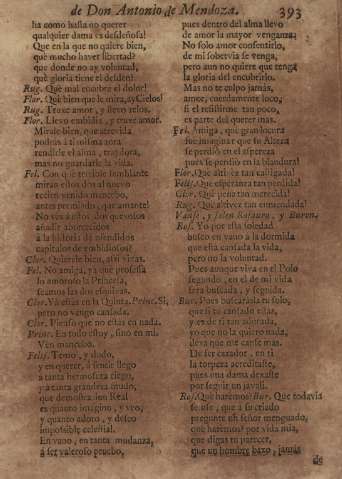 de Don Antonio de Mendoza. 393
ha como hasta no querer
qualquier dama es desdeñosa!
Que en la que no quiere bien,
què mucho haver libertad?
que donde no ay voluntad,
què gloria tiene el desdèn!
Rug. Què mal encubre el dolor!
Flor. Què bien que le mira, ay Cielos!
Rug. Truxe amor, y llevo zelos.
Flor. Llevo embidia, y truxe amor.
Mirale bien, que atrevida
podrà à sì misma
rendirle el alma, traydora,
mas no guardarle la vida.
Fel. Con què terrible semblante
miran estos dos al nuevo
recien venido mancebo,
antes rendido, que amante!
No vès à estos dos que solos
añadir aborrecidos
à la historia de ofendidos
capitulos de embidiosos?
Clor. Quierele bien, assi vivas.
Fel. No amiga, ya que professa
lo amoroso la Princesa,
seamos las dos esquivas.
Clor. Ya estàs en la Quinta. Princ. Si,
pero no vengo cansada.
Clor. Pienso que no estàs en nada.
Princ. En todo estoy, sino en mi.
Ven mancebo.
Felis. Temo, y dudo,
y en querer, à
à tanta hermosura ciego,
y à tanta grandeza mudo,
que demostracion Real
es quanto imagino, y veo,
y quanto adoro, y deseo
impossible celestial.
En vano, en tanta mudanza,
à ser valeroso pruebo,
pues dentro del alma llevo
de amor la mayor venganza.
No solo amor consentirlo,
de mi sobervia se venga,
pero aun no quiere que tenga
la gloria del encubrirlo.
Mas no te culpo jamàs,
amor, cuerdamente loco,
si el resistirme tan poco,
es parte del querer mas.
Fel. Amiga, què gran locura
fue imaginar que su Alteza
se perdiò en el aspereza
pues se perdiò en la blandura!
Flor. Què altivez tan castigada!
Felis. Què esperanza tan perdida!
Clor. Què pena tan merecida!
Rug. Què altivez tan enmendada!
Vanse, y salen Rosaura, y Buron.
Ros. Yo por esta soledad
busco en vano à la dormida
que està cansada la vida,
pero no la voluntad.
Pues aunque viva en el Polo
segundo, en el de mi vida
serà buscada, y seguida.
Bur. Pues buscarasla tu solo,
que si tu cansado estàs,
y es de ti tan adorada,
yo que no la quiero nada,
deva que me canse mas.
De ser cazador, en ti
la torpeza acreditaste,
pues una dama dexaste
por seguir un javalì.
Ros. Què haremos? Bur. Que todavia
se use, que à su criado
pregunte un señor menguado,
què haremos? por vida mia,
que digas tu parecer,
que un hombre baxo, jamàs
de